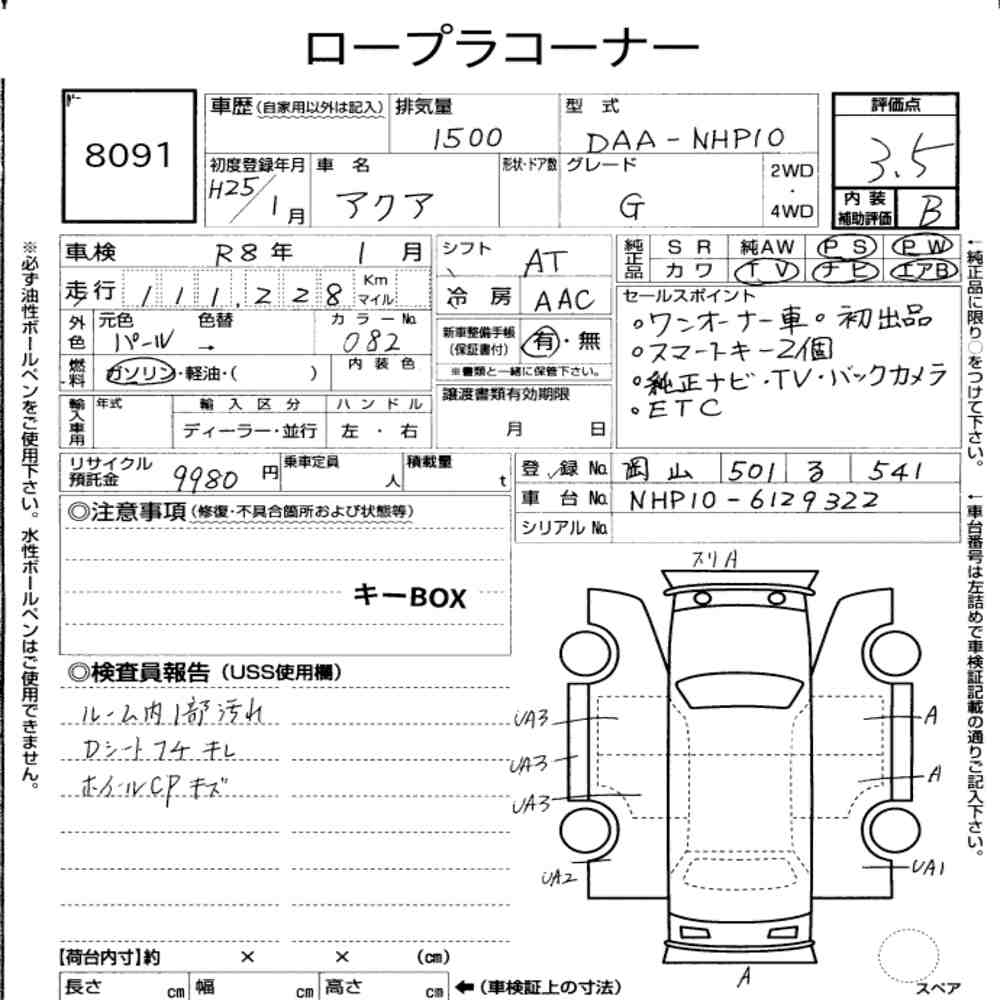 ロープラコーナー
8091
車歴(自家用以外は記入)
排気量
1500
型式
DAA-NHP10
評価点
3.5
初度登録年月
H25/1月
車名
アクア
形状・ドア数
グレード
G
2WD
・
4WD
内装
補助評価
B
車検 R8年 1月
走行 111,228 Km
マイル
外色 元色 色替 カラーNo.
パール → 082
燃料 ガソリン・軽油・( ) 内装色
輸入車用 年式 輸入区分 ハンドル
ディーラー・並行 左・右
シフト AT
冷房 AAC
新車整備手帳
(保証書付)
有・無
※書類と一緒に保管下さい。
譲渡書類有効期限
月 日
純正品 SR 純AW PS PW
カワ TV ナビ エアB
セールスポイント
○ワンオーナー車○初出品
○スマートキー2個
○純正ナビ・TV・バックカメラ
○ETC
リサイクル
預託金 9980円
乗車定員 人
積載量 t
登録No. 岡山 501 る 541
車台No. NHP10-6129322
シリアルNo.
◎注意事項(修復・不具合箇所および状態等)
キーBOX
◎検査員報告(USS使用欄)
ルーム内1部汚れ
Dシートフチキレ
ホイールCPキズ
スリA
UA3
UA3
UA3
UA2
A
A
UA1
A
スペア
【荷台内寸】約 × × (cm)
長さ cm 幅 cm 高さ cm ←(車検証上の寸法)
※必ず油性ボールペンをご使用下さい。水性ボールペンはご使用できません。
←純正品に限り○をつけて下さい。
←車台番号は左詰めで車検証記載の通りご記入下さい。